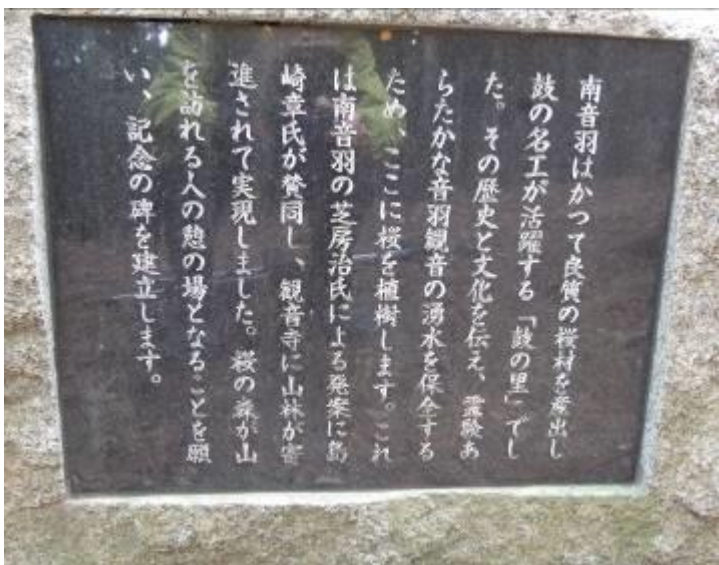 南音羽はかつて良質の桜材を産出し
鼓の名工が活躍する「鼓の里」でし
た。その歴史と文化を伝え、霊験あ
らたかな音羽観音の湧水を保全する
ため、ここに桜を植樹します。これ
は南音羽の芝房治氏による発案に島
崎章氏が賛同し、観音寺に山林が寄
進されて実現しました。桜の森が山
を訪れる人の憩の場となることを願
い、記念の碑を建立します。